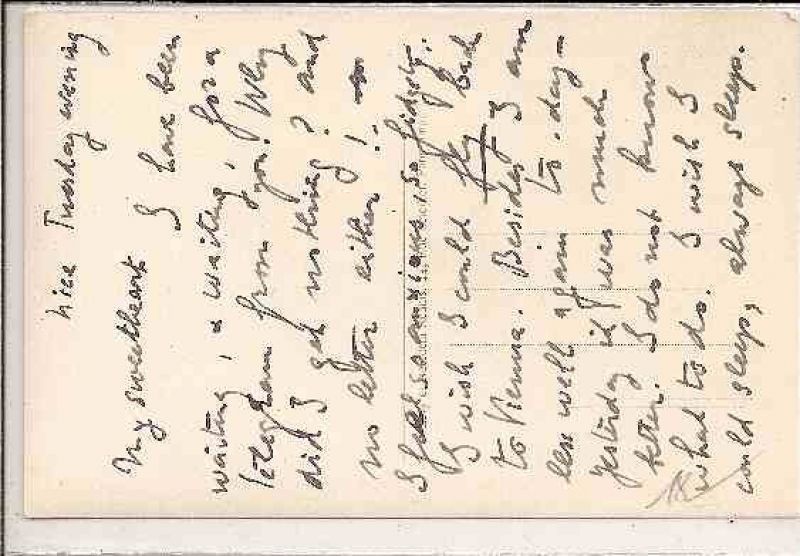 Nice Tuesday evening
My sweetheart I have been
waiting, a waiting, for a
telegram from you. Why
did I get nothing? and
no letter either!
I feel so anxious, so fidgety.
I wish I could fly back
to Vienna. Besides I am
less well again to-day –
yesterday it was much
better. I do not know
what to do. I wish I
could sleep, always sleep.
18